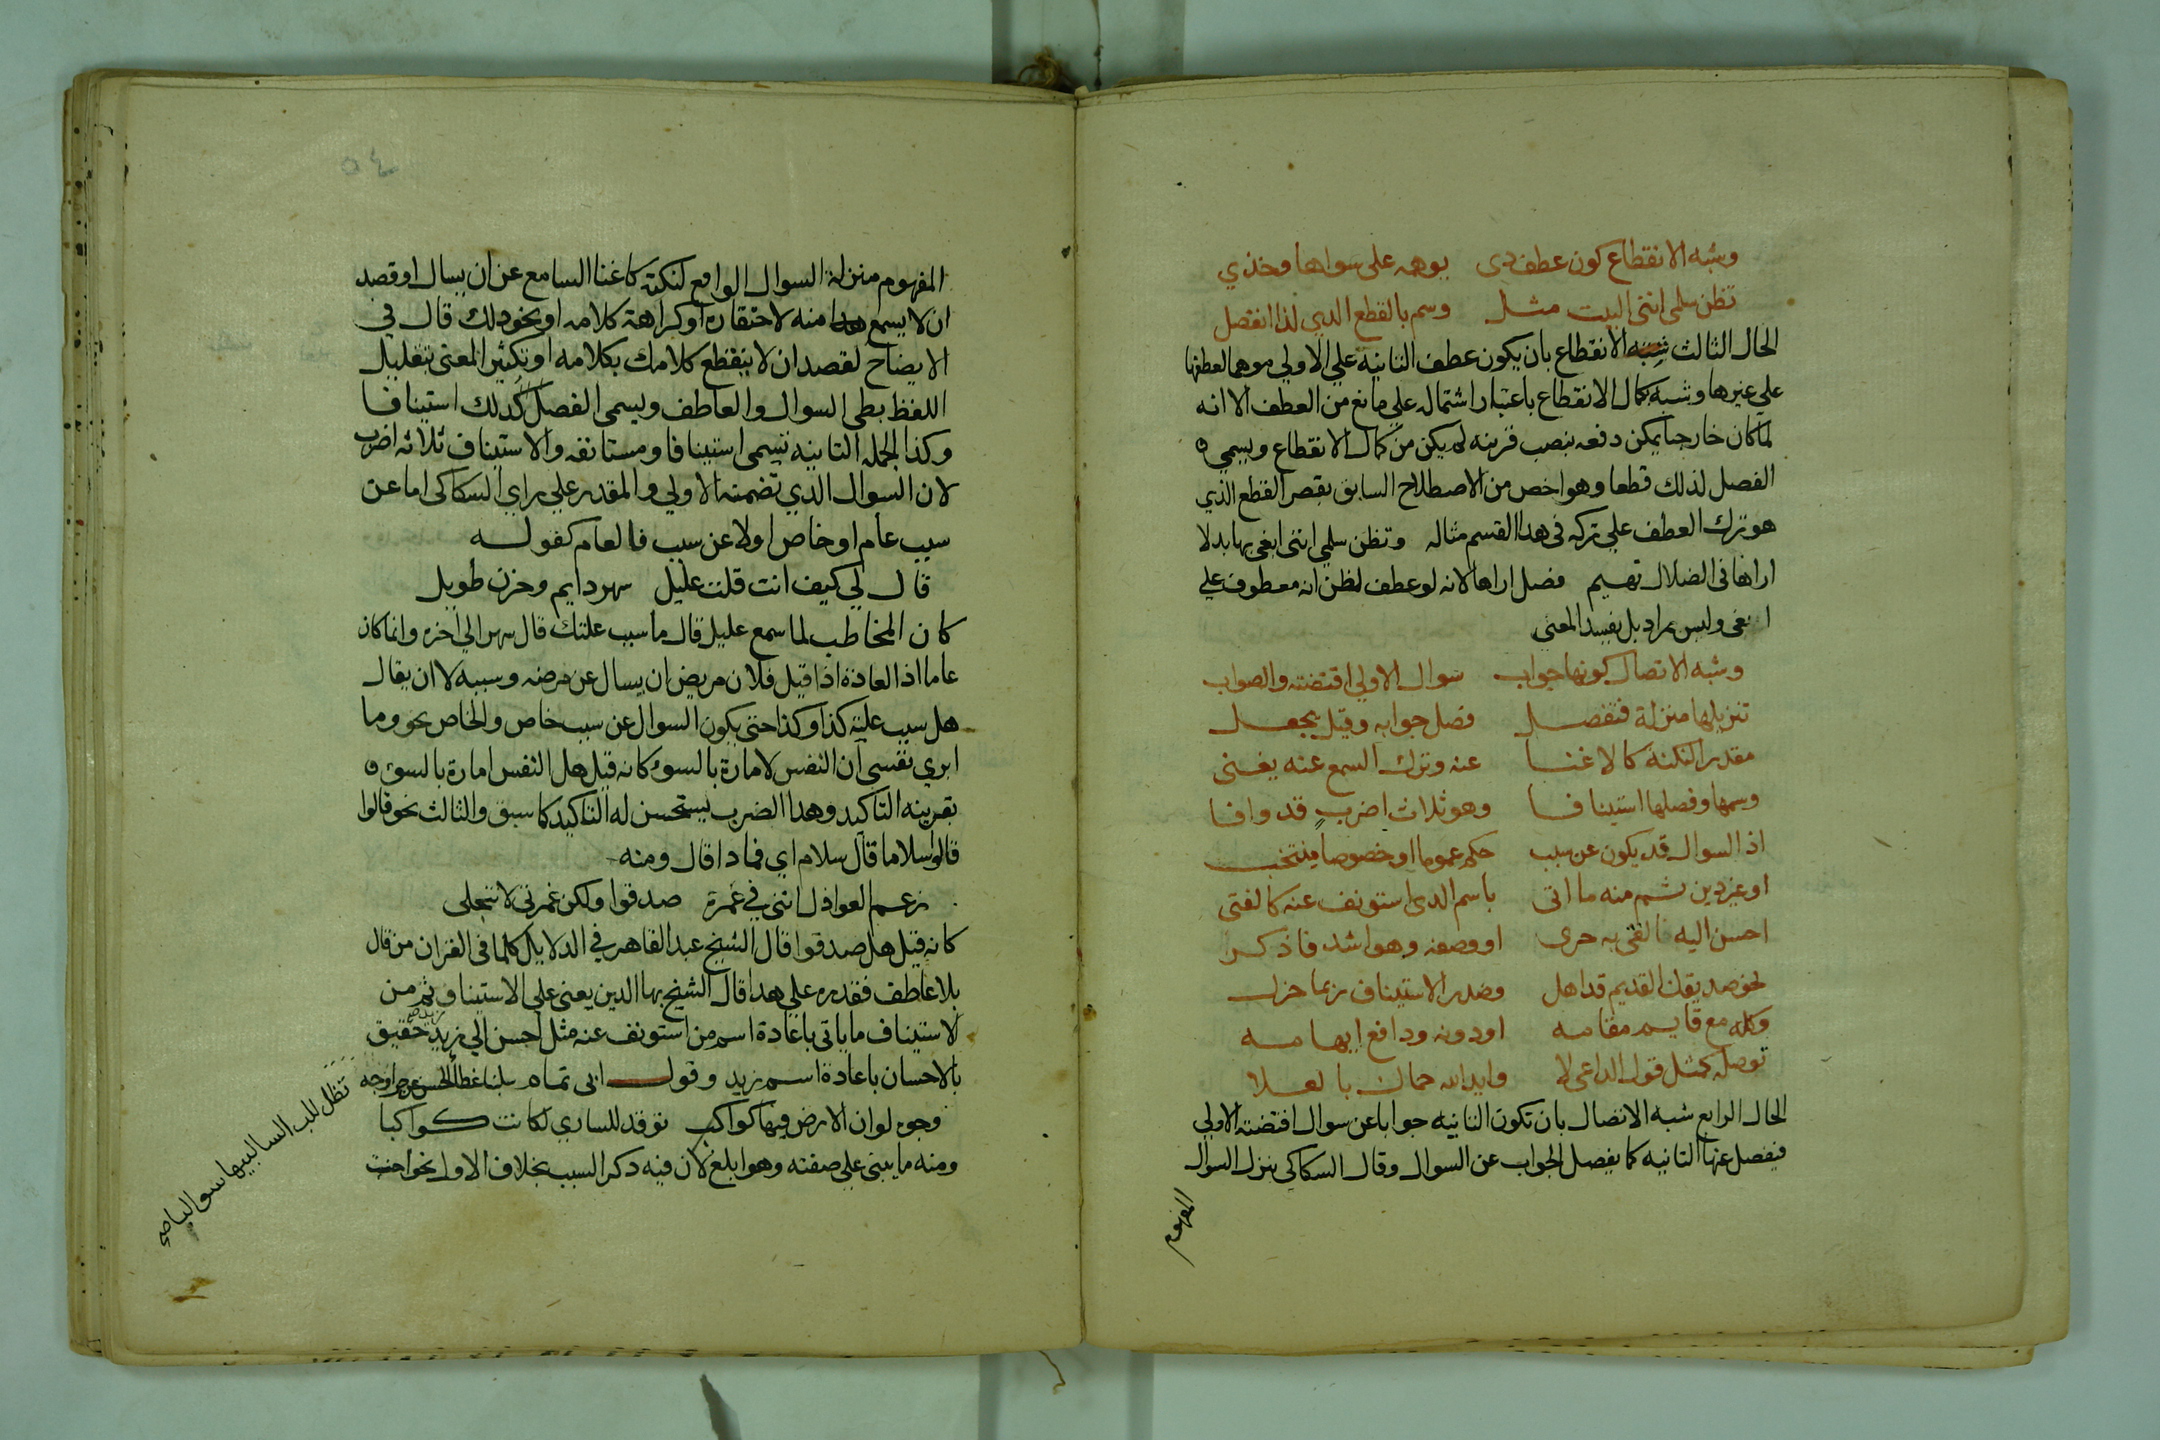 وشبه الانقطاع كون عطف ذى يوهم على سواها وخذي
تظن سلمى اننى البيت مثل وسم بالقطع الذي لذا انفصل
الحال الثالث شبه الانقطاع بان يكون عطف الثانية علي الاولي موهما لعطفها
على غيرها وشبه بكمال الانقطاع باعتبار اشتماله علي مانع من العطف الا انه
لما كان خارجيا يمكن دفعه بنصب قرينه لم يكن من كمال الانقطاع ويسمي
الفصل لذلك قطعا وهو اخص من الاصطلاح السابق بقصر القطع الذي
هو ترك العطف علي تركه في هذا القسم مثاله وتظن سلمي اننى ابغي بها بدلا
اراها في الضلال تهيم فصل اراها لانه لو عطف لظن انه معطوف علي
ابغى وليس مراد بل يفسد المعني
وشبه الاتصال كونها جواب سوال الاولي اقتضته والصواب
تنزيلها منزلة فتفصل فصل جوابه وقيل يجعل
مقدرا لنكتة كالاغنا عنه وترك السمع عنه يغنى
وسمها وفصلها استينافا وهو ثلاث اضرب قد وافا
اذ السوال قد يكون عن سبب حكم عموما او خصوصا ينتخب
او غير ذين ثم منه ما اتى باسم الذى استونف عنه كالفتى
احسن اليه فالفتى به حرى او وصفه وهو اشد فاذكر
نحو صديقك القديم قد اهل وصدر الاستيناف ربما خزل
وكله مع قايم مقامه او دونه ودافع ايهامه
توصله كمثل قول الداعى لا وايد الله حماك بالعلا
الحال الرابع شبه الاتصال بان تكون الثانيه جوابا عن سوال اقتضته الاولي
فيفصل عنها الثانيه كما يفصل الجواب عن السوال وقال السكاكي ينزل السوال
المفهوم
٥٤
المفهوم منزلة السوال الواقع لنكتة كاغنا السامع عن ان يسال او قصد
ان لا يسمع منه لاحتقاره او كراهة كلامه او نحو ذلك قال في
الايضاح لقصد ان لا ينقطع كلامك بكلامه او تكثير المعنى بتقليل
اللفظ بطى السوال والعاطف ويسمى الفصل كذلك استينافا
وكذا الجمله الثانيه تسمى استينافا ومستانفه والاستيناف ثلاثه اضرب
لان السوال الذي تضمنته الاولي والمقدر علي راي السكاكى اما عن
سبب عام او خاص او لا عن سبب فالعام كقوله
قال لي كيف انت قلت عليل سهر دايم وحزن طويل
كان المخاطب لما سمع عليل قال ما سبب علتك قال سهر الي اخره وانما كان
عاما اذ العادة اذا قيل فلان مريض ان يسال عن مرضه وسببه لا ان يقال
هل سبب علته كذا وكذا حتى يكون السوال عن سبب خاص والخاص نحو وما
ابري نفسي ان النفس لامارة بالسوء كانه قيل هل النفس امارة بالسوء
بقرينه التاكيد وهذا الضرب يستحسن له التاكيد كما سبق والثالث نحو قالوا
قالوا سلاما قال سلام اي فماذا قال ومنه
زعم العواذل اننى في غمرة صدقوا ولكن غمرتي لا تنجلى
كانه قيل هل صدقوا قال الشيخ عبد القاهر في الدلايل كلما في القران من قال
بلا عاطف فقدره علي هذا قال الشيخ بها الدين يعنى على الاستيناف ثم من
الاستيناف ما ياتي باعادة اسم من استونف عنه مثل احسن الي زيد زيد حقيق
بالاحسان باعادة اسم زيد وقول ابى تمام
وجوه لو ان الارض فيها كواكب توقد للساري لكانت كواكبا
ومنه ما يبنى علي صفته وهو ابلغ لان فيه ذكر السبب بخلاف الاول نحو احسنت